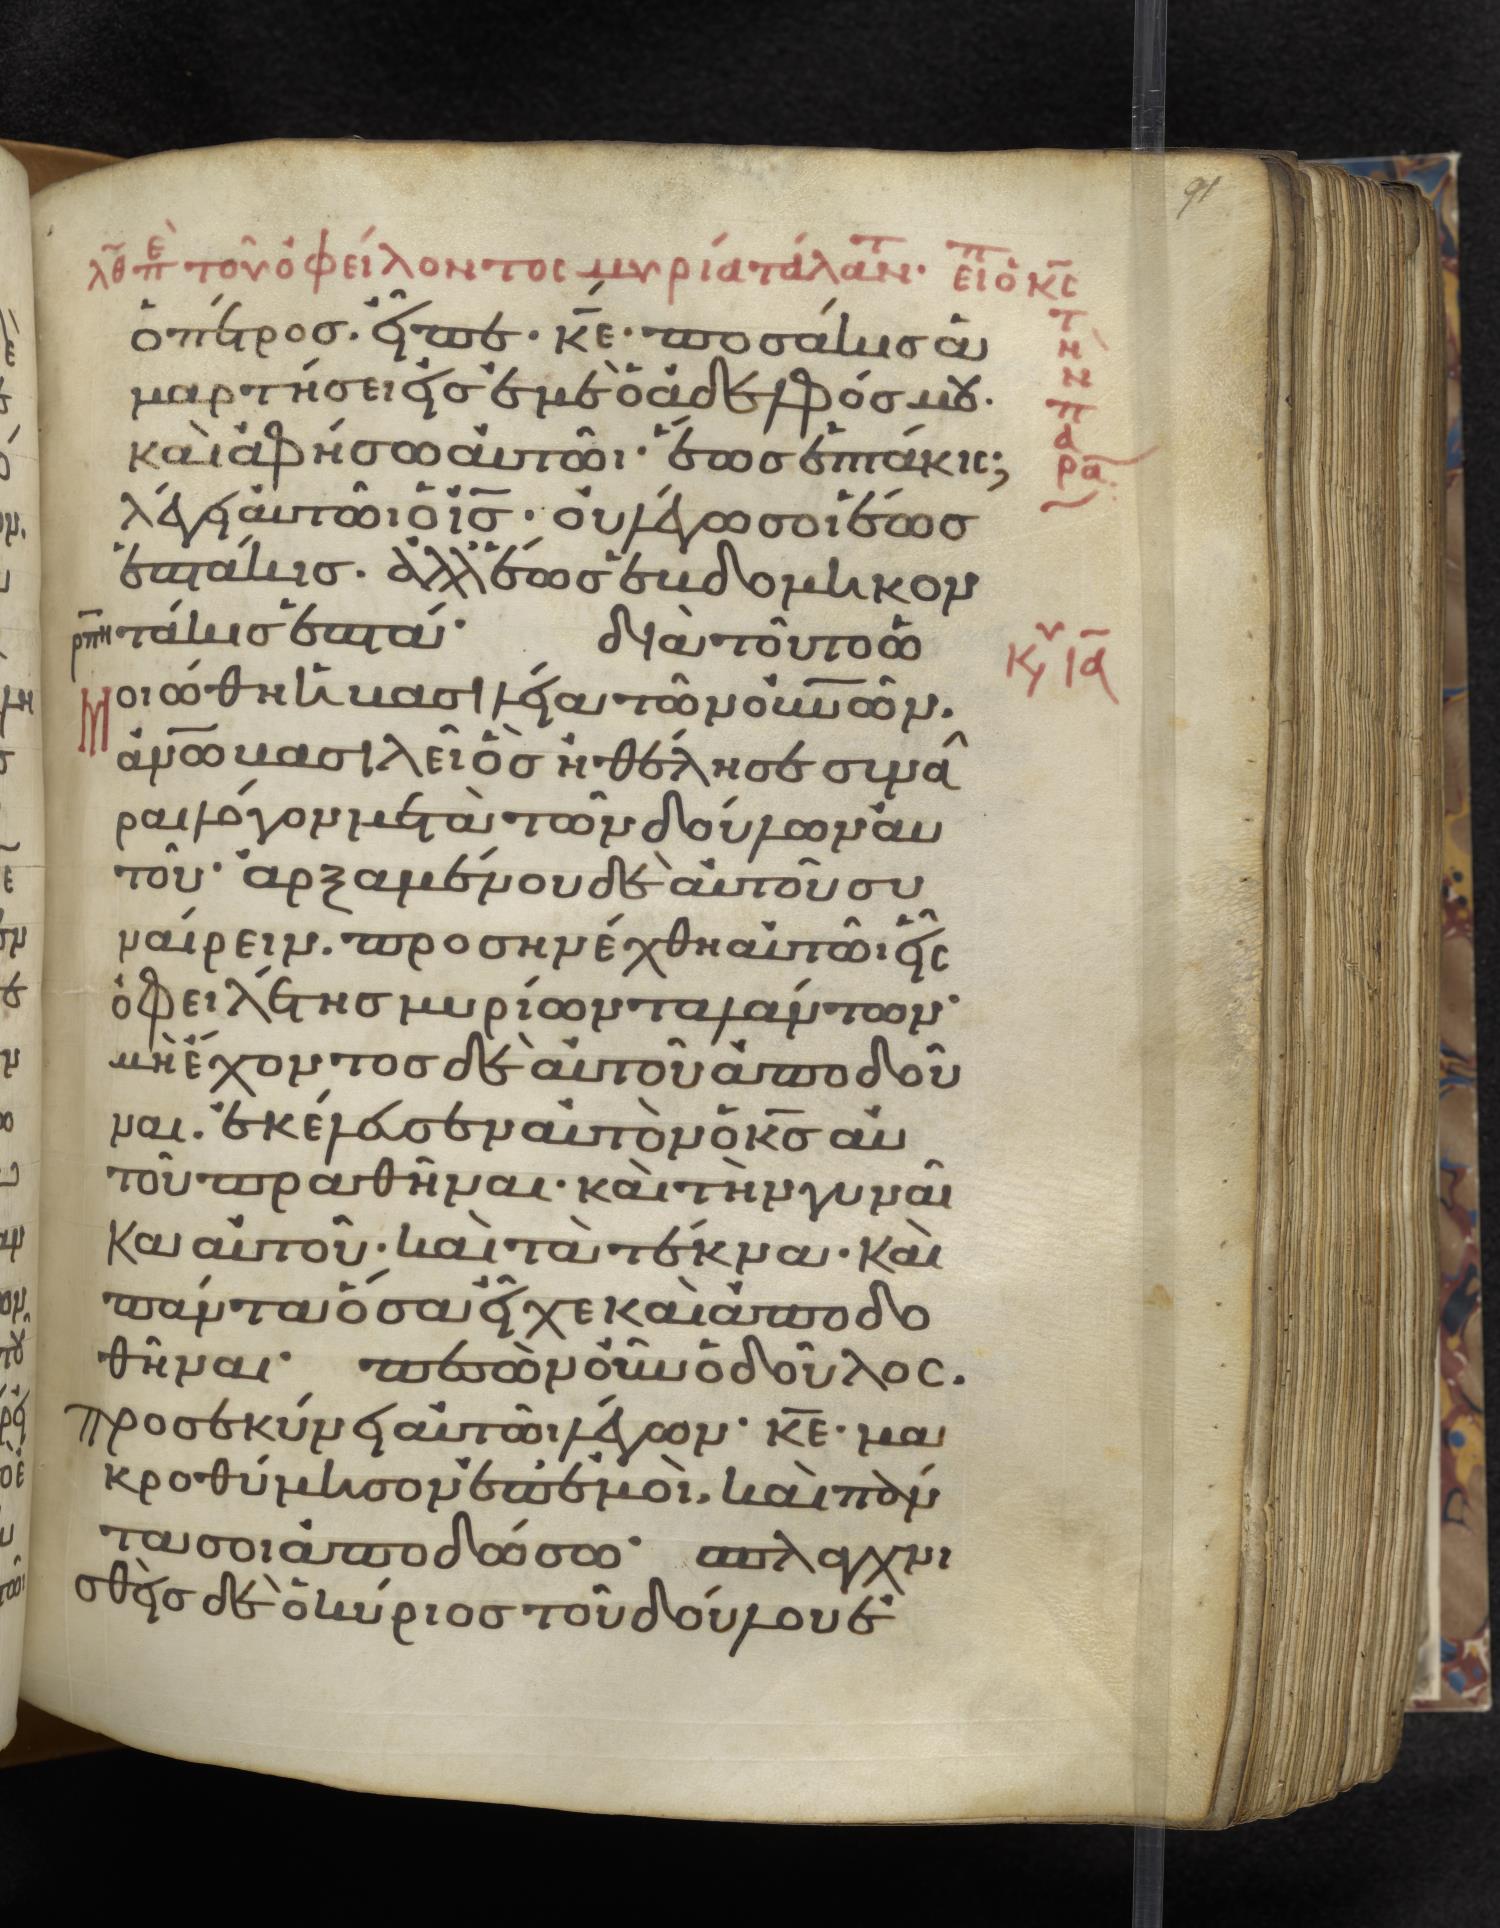 91
λθ πε τοῦ ὀφείλοντος μυρία τάλαν̅τ̅· εἶπ ὁ κ̅ς̅ τὴν παραβ
ὁ πέτρος. εἶπε· κ̅ε̅· ποσάκις ἁ
μαρτήσει εἰς ἐμὲ ὁ ἀδελφός μου.
καὶ ἀφήσω αὐτῶι· ἕως ἑπτάκις;
λέγει αὐτῶι ὁ ι̅ς̅· οὐ λέγω σοι ἕως
ἑπτάκις. ἀλλ' ἕως ἑβδομηκον
ρπη τάκις ἑπτά· διὰ τοῦτο ὡ
μοιώθη ἡ βασιλεία τῶν οὐν̅ῶν.
κυ ια
ἀν̅ω βασιλεῖ ὃς ἠθέλησε συνᾶ
ραι λόγον μετὰ τῶν δούλων αὐ
τοῦ· ἀρξαμένου δὲ αὐτοῦ συ
ναίρειν. προσηνέχθη αὐτῶι εἷς
ὀφειλέτης μυρίων ταλάντων·
μὴ ἔχοντος δὲ αὐτοῦ ἀποδοῦ
ναι. ἐκέλευσεν αὐτὸν ὁ κ̅ς̅ αὐ
τοῦ πραθῆναι· καὶ τὴν γυναῖ
κα αὐτοῦ· καὶ τὰ τέκνα· καὶ
πάντα ὅσα εἶχε καὶ ἀποδο
θῆναι· πεσὼν οὖν ὁ δοῦλος.
προσεκύνει αὐτῶι λέγων· κ̅ε̅· μα
κροθύμησον ἐπ' ἐμοὶ. καὶ πάν
τα σοι ἀποδώσω· σπλαγχνι
σθεὶς δὲ ὁ κύριος τοῦ δούλου ἐ